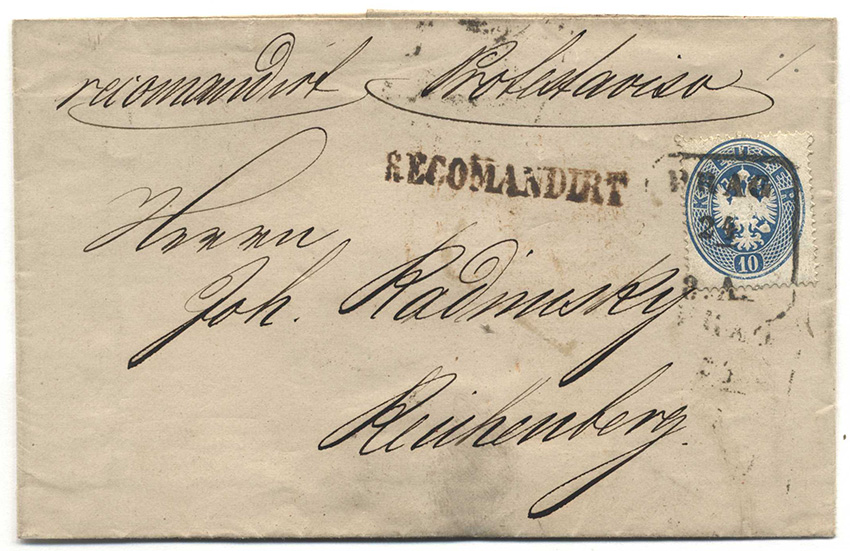 recomandirt Protestaviso
RECOMANDIRT
PRAG
10
8. A.
Herrn
Joh. Radimsky
Reichenberg.